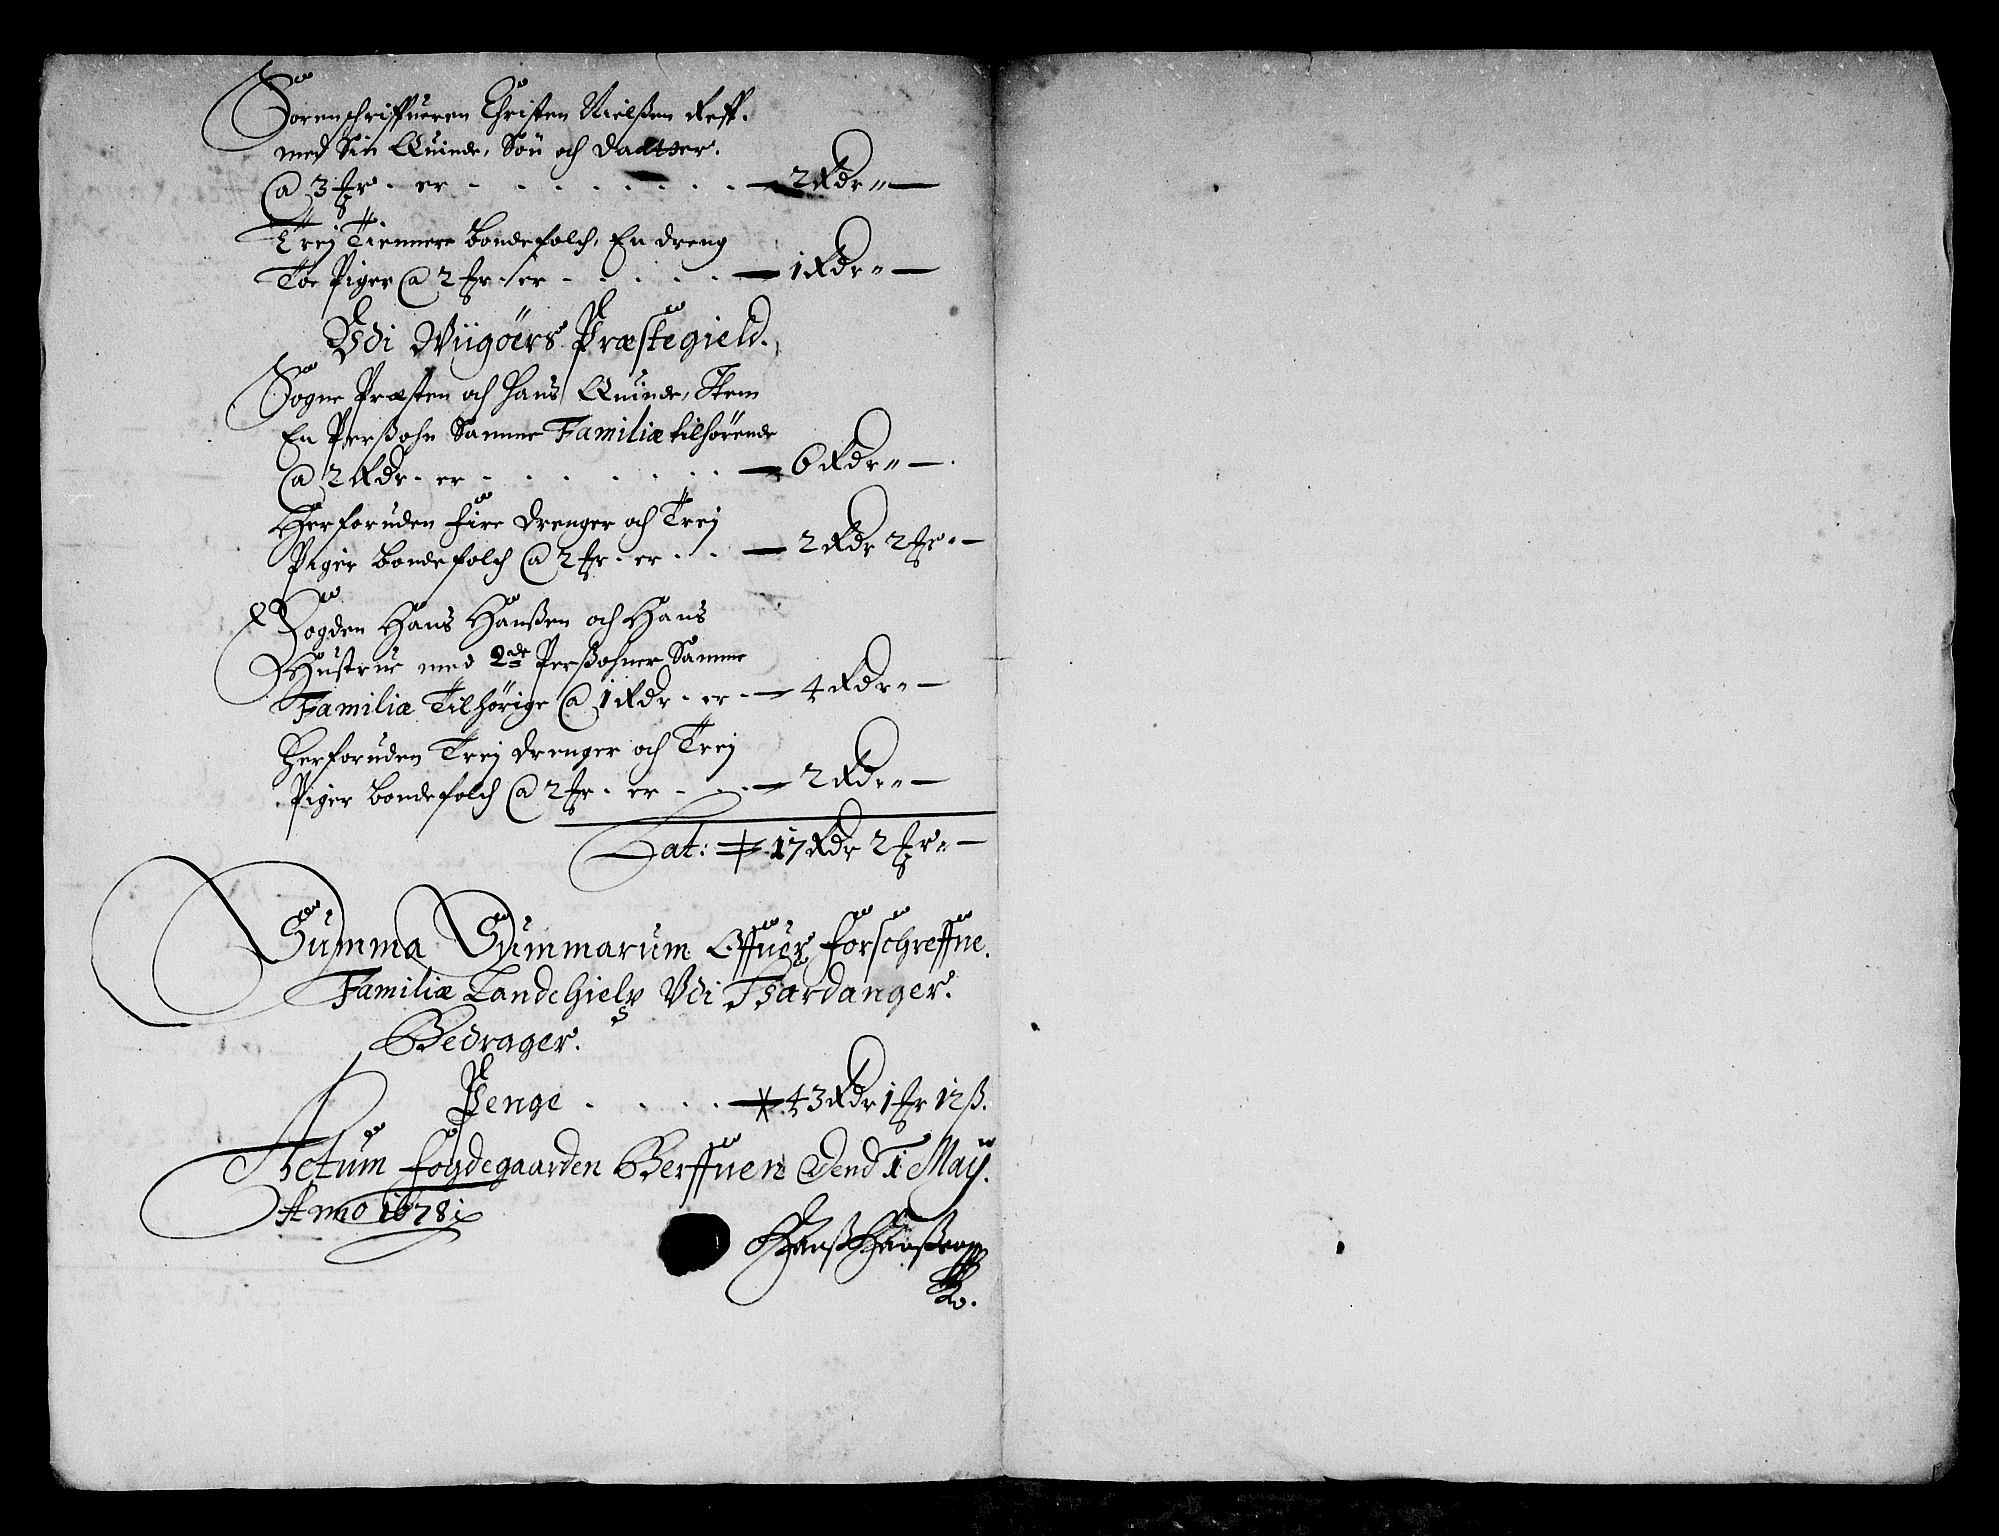 Sorenschriffueren Christen Nielßen Reff.
med Sin Quinde, Sön och Daatter.
@ 3 ßr. er - - - 2 Rdr " —
Trej Tiennere bondefolch, En dreng
Toe Piger @ 2 ßr. er - - - 1 Rdr " —
Udi Wiigöers Præstegield.
Sogne Præsten och hans Quinde, Item
En Perßohn Samme Familiæ tilhörende
@ 2 Rdr. er - - - 6 Rdr " —
Herforuden fire drenger och Trej
Piger bondefolch @ 2 ßr. er - - 2 Rdr 2 ßr " —
Fogden Hans Hanßen och Hans
Hustrue med 2de Perßohner Samme
Familiæ Tilhörige @ 1 Rdr. er - 4 Rdr " —
Herforuden Trej drenger och Trej
Piger bondefolch @ 2 ßr. er - - 2 Rdr " —
Lat: 17 Rdr 2 ßr " —
Summa Summarum Offuer forschreffne
Familiæ Landehielp Udi Hardanger
Bedrager.
Penge - - - 43 Rdr 1 ßr 12 ß.
Actum fogdegaarden Berffuen Dend 1 Maij.
Anno 1678
Hanß Hanßen